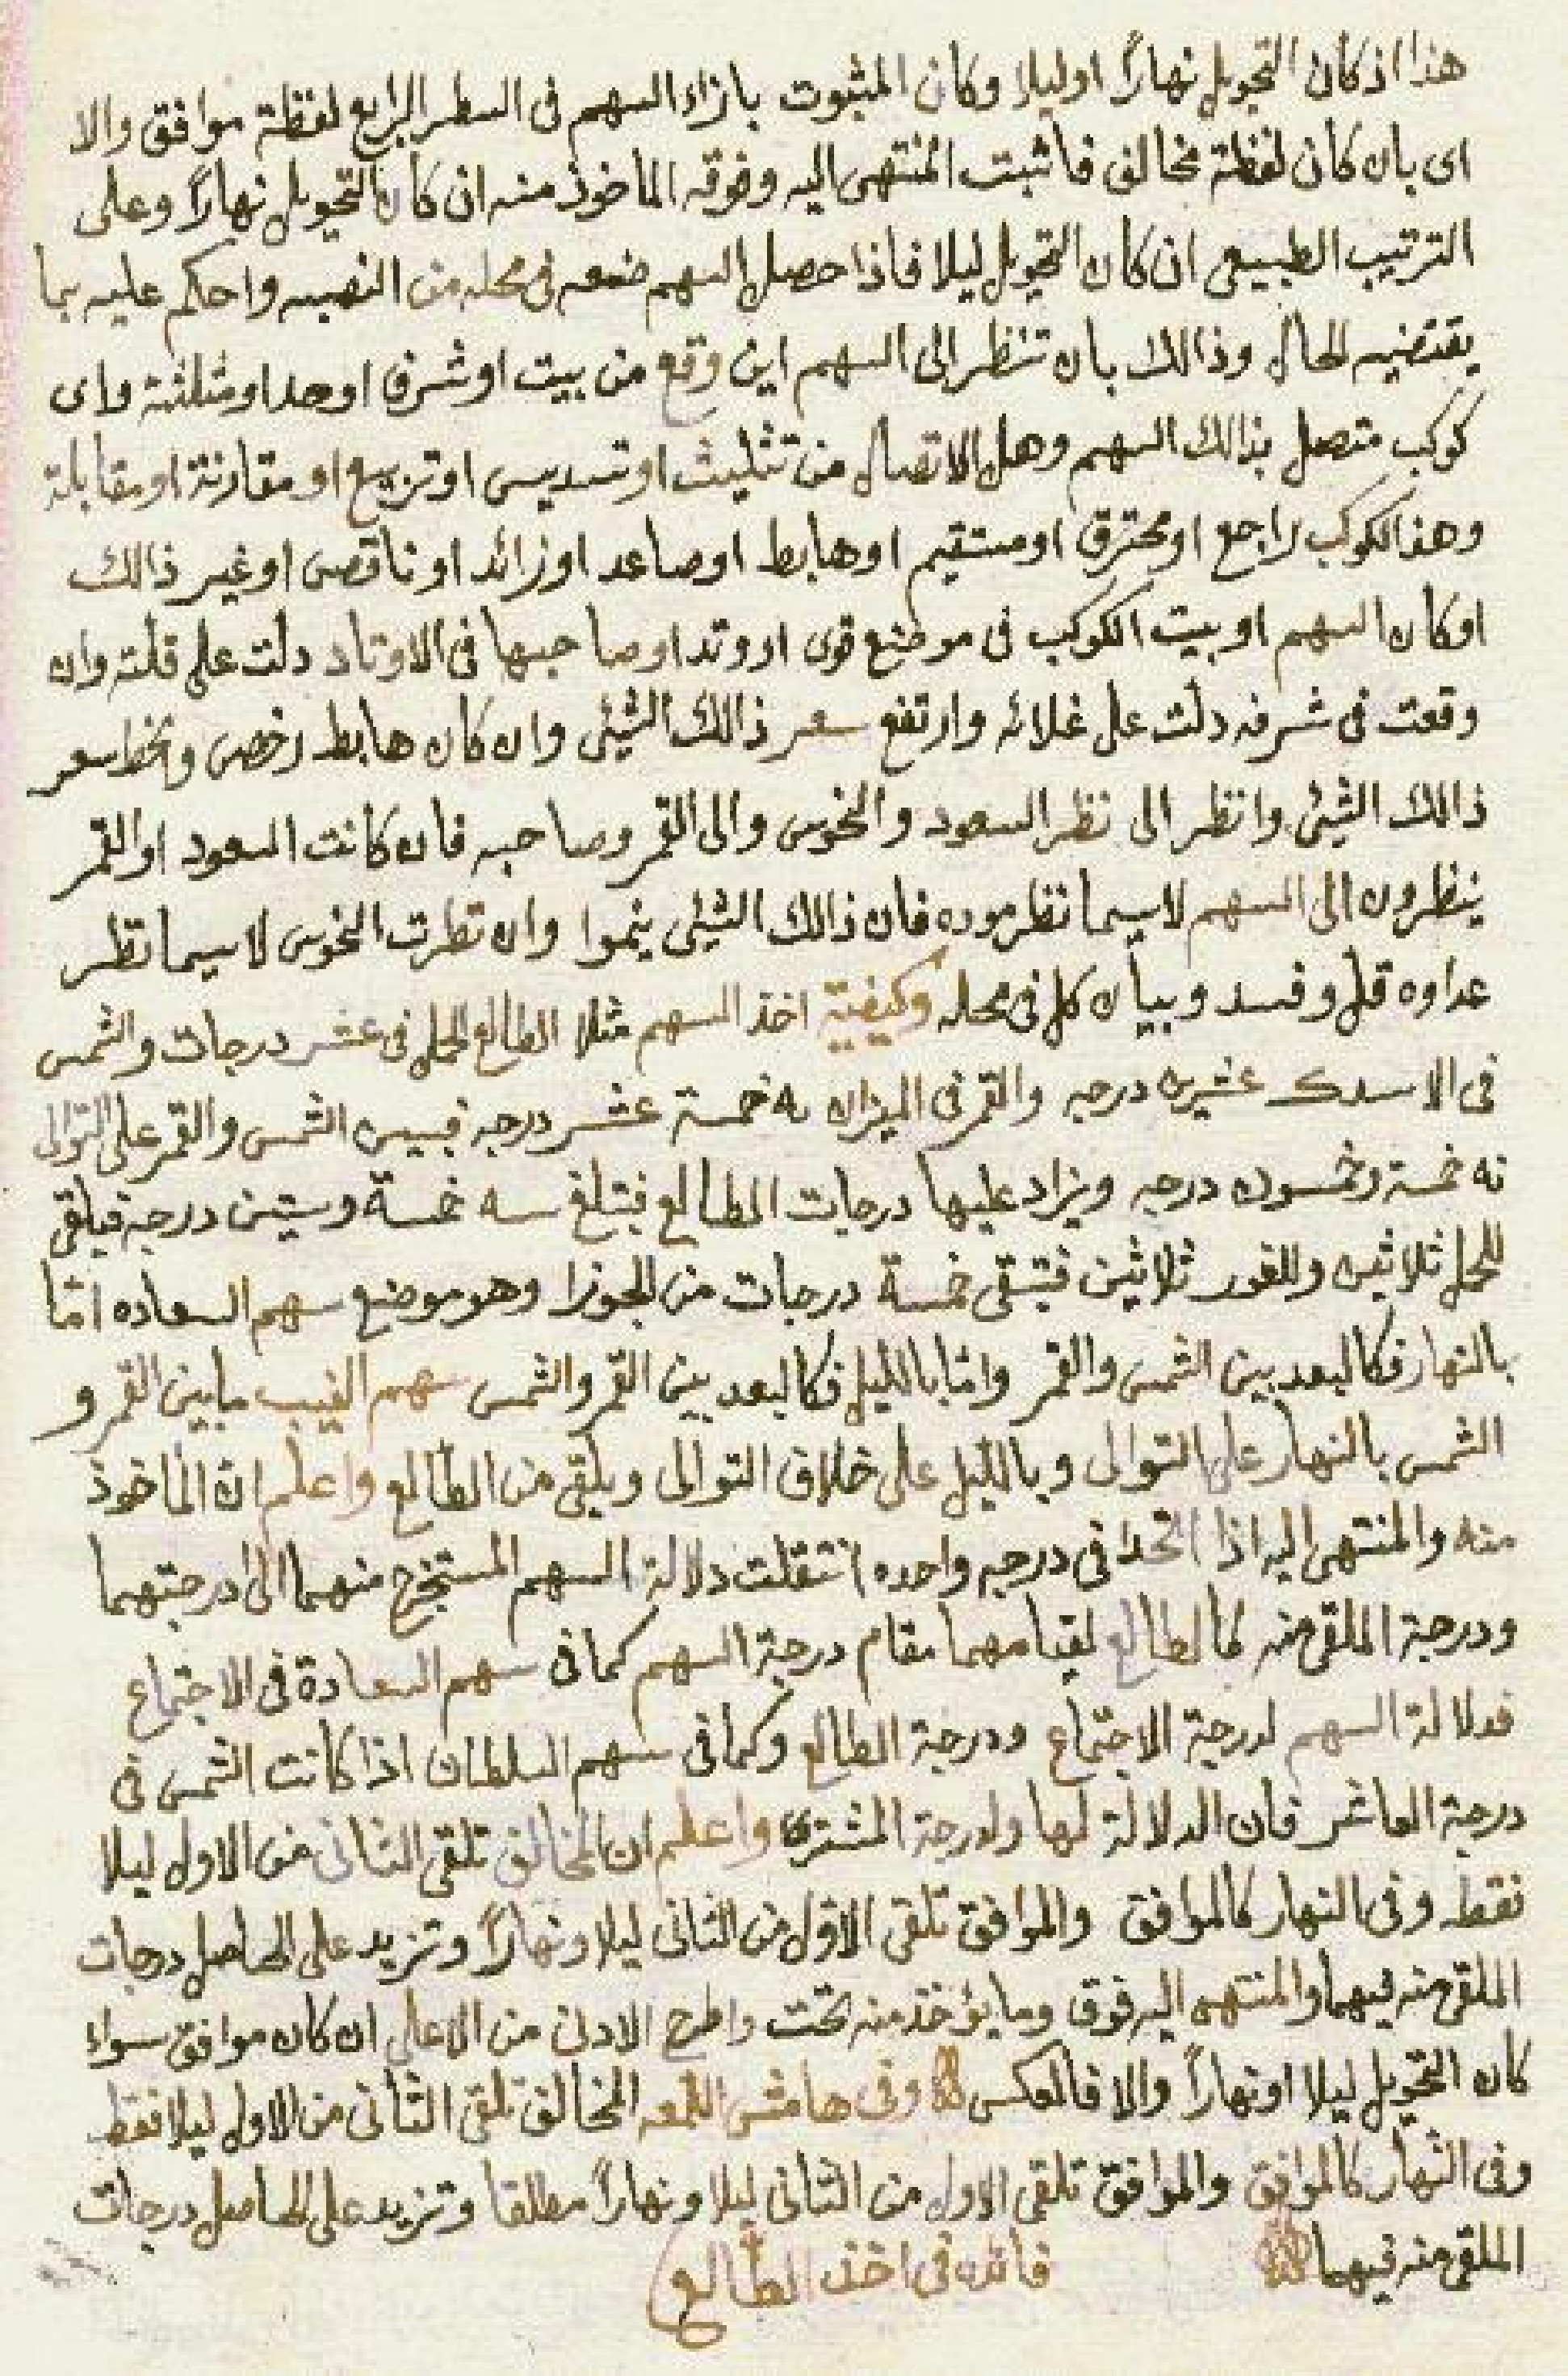 هذا اذ كان التحويل نهاراً او ليلا وكان المثبوت بازاء السهم فى السطر الرابع لفظة موافق والا
اى بان كان لفظة مخالف فاثبت المنتهى اليه وفوقه الماخوذ منه ان كان التحويل نهاراً وعلى
الترتيب الطبيعى ان كان التحويل ليلا فاذا حصل السهم ضعه فى محله من النصبه واحكم عليه بما
يقتضيه الحال وذالك بان تنظر الى السهم اين وقع من بيت او شرف او حد او مثلثة واى
كوكب متصل بذالك السهم وهل الاتصال من تثليث او تسديس او تربيع او مقارنة او مقابلة
وهذ الكوكب راجع او محترق او مستقيم او هابط او صاعد او زائد او ناقص او غير ذالك
او كان السهم او بيت الكوكب فى موضع قوى او وتد او صاحبها فى الاوتاد دلت على قلته وان
وقعت فى شرفه دلت على غلائه وارتفع سعر ذالك الشيئ وان كان هابط رخص وانحط سعر
ذالك الشيئ وانظر الى نظر السعود والنحوس والى القمر وصاحبه فان كانت السعود او القمر
ينظرون الى السهم لاسيما نظر موده فان ذالك الشيئ ينموا وان نظرت النحوس لاسيما نظر
عداوه قل وفسد وبيان كل فى محله وكيفية اخذ السهم مثلا الطالع الحمل فى عشر درجات والشمس
فى الاسد ك عشرين درجه والقمر فى الميزان يه خمسة عشر درجه فبين الشمس والقمر على التوالى
نه خمسة وخمسون درجه ويزاد عليها درجات الطالع فتبلغ سه خمسة وستين درجة فيلقى
للحمل ثلاثين وللثور ثلاثين فتبقى خمسة درجات من الجوزا وهو موضع سهم السعاده امّا
بالنهار فكالبعد بين الشمس والقمر وامّا بالليل فكالبعد بين القمر والشمس سهم الغيب ما بين القمر و
الشمس بالنهار على التوالى وبالليل على خلاف التوالى ويلقى من الطالع واعلم ان الماخوذ
منه والمنتهى اليه اذا اتحدا فى درجه واحده انتقلت دلالة السهم المستخرج منهما الى درجتهما
ودرجة الملقى منه كالطالع لقيامهما مقام درجة السهم كما فى سهم السعادة فى الاجتماع
فدلالة السهم لدرجة الاجتماع ودرجة الطالع وكما فى سهم السلطان اذا كانت الشمس فى
درجة العاشر فان الدلالة لها ولدرجة المشترى واعلم ان المخالف تلقى الثانى من الاول ليلا
فقط وفى النهار كالموافق والموافق تلقى الاوّل من الثانى ليلا ونهاراً وتزيد على الحاصل درجات
الملقى منه فيهما والمنتهى اليه فوق وما يؤخذ منه تحت واطرح الادنى من الاعلى ان كان موافق سواء
كان التحويل ليلا او نهاراً والا فالعكس وفى هامش اللمعه المخالف تلقى الثانى من الاول ليلا فقط
وفى النهار كالموافق والموافق تلقى الاول من الثانى ليلا ونهاراً مطلقا وتزيد على الحاصل درجات
الملقى منه فيهما فائده فى اخذ الطالع